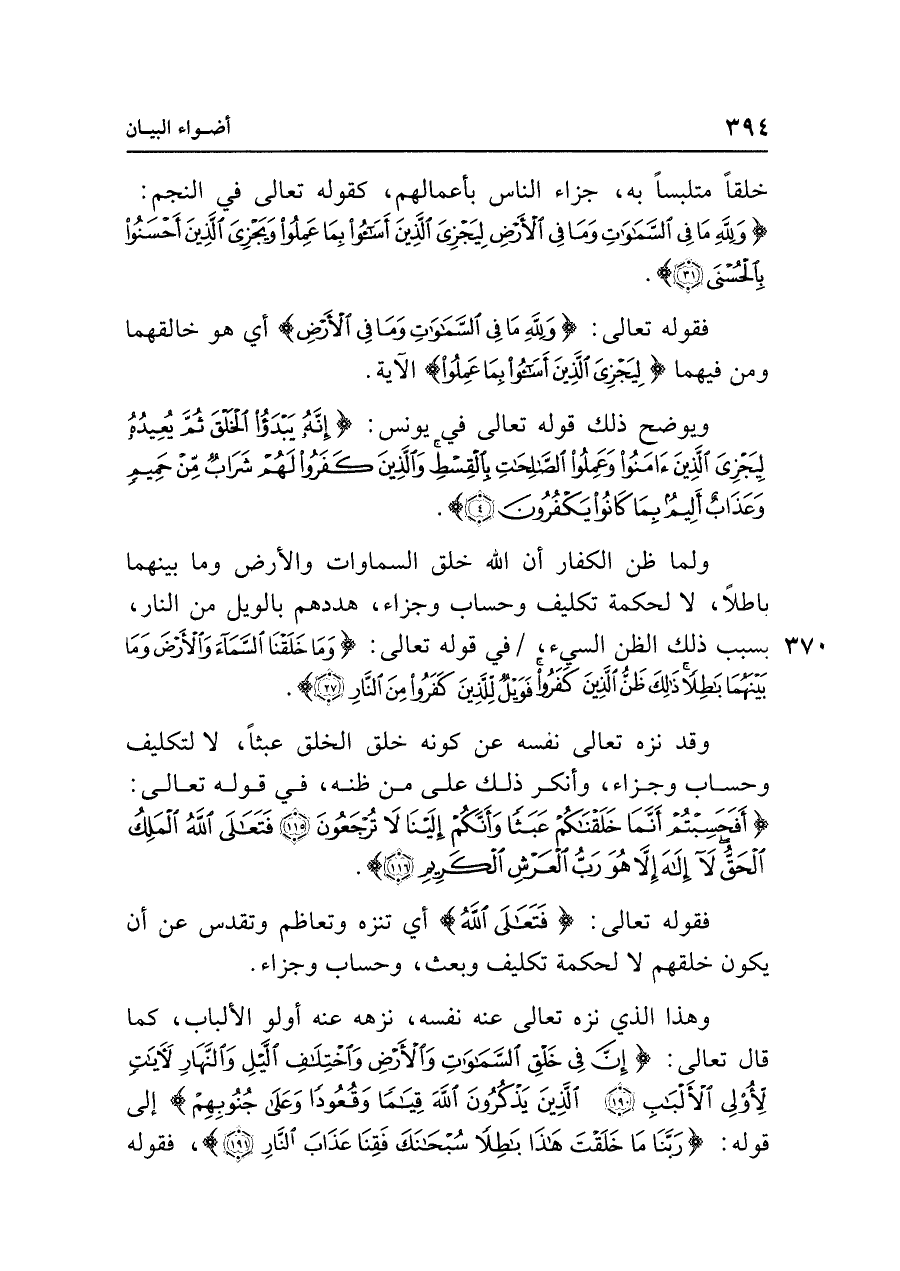 ٣٩٤ أضـواء البيـان
خلقاً متلبساً به، جزاء الناس بأعمالهم، كقوله تعالى في النجم:
﴿ وَلِلَّهِ مَا فِي ٱلسَّمَٰوَٰتِ وَمَا فِي ٱلْأَرْضِ لِيَجْزِيَ ٱلَّذِينَ أَسَٰٓـُٔوا۟ بِمَا عَمِلُوا۟ وَيَجْزِيَ ٱلَّذِينَ أَحْسَنُوا۟
بِٱلْحُسْنَى ٣١﴾ .
فقوله تعالى: ﴿ وَلِلَّهِ مَا فِي ٱلسَّمَٰوَٰتِ وَمَا فِي ٱلْأَرْضِ﴾ أي هو خالقهما
ومن فيهما ﴿ لِيَجْزِيَ ٱلَّذِينَ أَسَٰٓـُٔوا۟ بِمَا عَمِلُوا۟﴾ الآية.
ويوضح ذلك قوله تعالى في يونس: ﴿ إِنَّهُۥ يَبْدَؤُا۟ ٱلْخَلْقَ ثُمَّ يُعِيدُهُۥ
لِيَجْزِيَ ٱلَّذِينَ ءَامَنُوا۟ وَعَمِلُوا۟ ٱلصَّٰلِحَٰتِ بِٱلْقِسْطِۚ وَٱلَّذِينَ كَفَرُوا۟ لَهُمْ شَرَابٌ مِّنْ حَمِيمٍ
وَعَذَابٌ أَلِيمٌۢ بِمَا كَانُوا۟ يَكْفُرُونَ ٤﴾ .
ولما ظن الكفار أن الله خلق السماوات والأرض وما بينهما
باطلاً، لا لحكمة تكليف وحساب وجزاء، هددهم بالويل من النار،
٣٧٠ بسبب ذلك الظن السيء، / في قوله تعالى: ﴿ وَمَا خَلَقْنَا ٱلسَّمَآءَ وَٱلْأَرْضَ وَمَا
بَيْنَهُمَا بَٰطِلًاۚ ذَٰلِكَ ظَنُّ ٱلَّذِينَ كَفَرُوا۟ۚ فَوَيْلٌ لِّلَّذِينَ كَفَرُوا۟ مِنَ ٱلنَّارِ ٢٧﴾ .
وقد نزه تعالى نفسه عن كونه خلق الخلق عبثاً، لا لتكليف
وحساب وجزاء، وأنكر ذلك على من ظنه، في قوله تعالى:
﴿ أَفَحَسِبْتُمْ أَنَّمَا خَلَقْنَٰكُمْ عَبَثًا وَأَنَّكُمْ إِلَيْنَا لَا تُرْجَعُونَ ١١٥ فَتَعَٰلَى ٱللَّهُ ٱلْمَلِكُ
ٱلْحَقُّۖ لَآ إِلَٰهَ إِلَّا هُوَ رَبُّ ٱلْعَرْشِ ٱلْكَرِيمِ ١١٦﴾ .
فقوله تعالى: ﴿ فَتَعَٰلَى ٱللَّهُ﴾ أي تنزه وتعاظم وتقدس عن أن
يكون خلقهم لا لحكمة تكليف وبعث، وحساب وجزاء.
وهذا الذي نزه تعالى عنه نفسه، نزهه عنه أولو الألباب، كما
قال تعالى: ﴿ إِنَّ فِي خَلْقِ ٱلسَّمَٰوَٰتِ وَٱلْأَرْضِ وَٱخْتِلَٰفِ ٱلَّيْلِ وَٱلنَّهَارِ لَـَٔايَٰتٍ
لِّأُو۟لِي ٱلْأَلْبَٰبِ ١٩٠ ٱلَّذِينَ يَذْكُرُونَ ٱللَّهَ قِيَٰمًا وَقُعُودًا وَعَلَىٰ جُنُوبِهِمْ ﴾ إلى
قوله: ﴿ رَبَّنَا مَا خَلَقْتَ هَٰذَا بَٰطِلًا سُبْحَٰنَكَ فَقِنَا عَذَابَ ٱلنَّارِ ١٩١﴾، فقوله